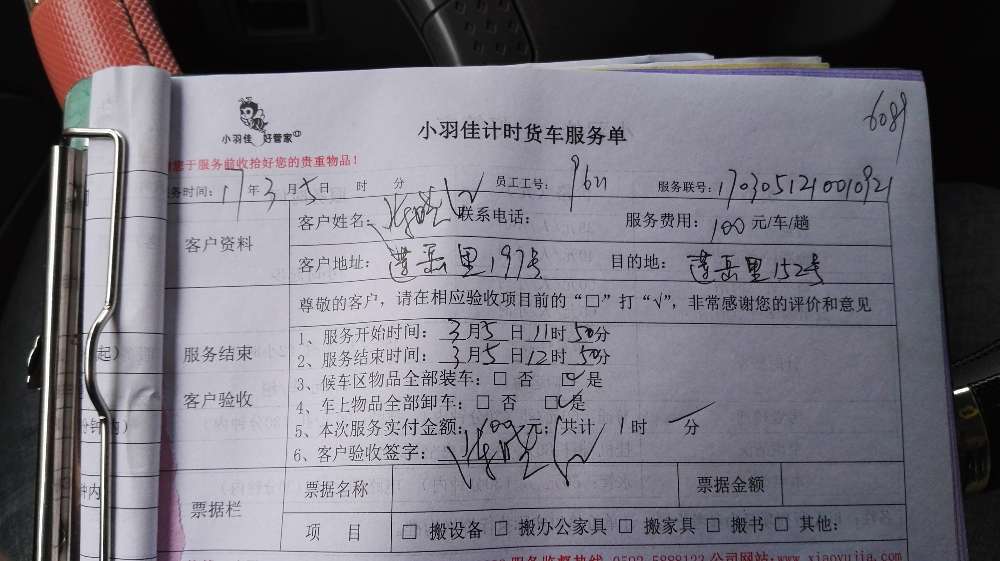 6089
小羽佳 好管家
小羽佳计时货车服务单
您于服务前收拾好您的贵重物品！
务时间：17年3月5日 时 分 员工工号：9611 服务联号：1703051210010921
客户资料
客户姓名： 联系电话： 服务费用：100元/车/趟
客户地址：莲岳里197号 目的地：莲岳里152号
尊敬的客户，请在相应验收项目前的“□”打“√”，非常感谢您的评价和意见
服务结束
客户验收
1、服务开始时间：3月5日11时50分
2、服务结束时间：3月5日12时50分
3、候车区物品全部装车：□ 否 ☑ 是
4、车上物品全部卸车：□ 否 ☑ 是
5、本次服务实付金额：100元；共计 1时 一 分
6、客户验收签字：
票据栏
票据名称 票据金额
项 目 □ 搬设备 □ 搬办公家具 □ 搬家具 □ 搬书 □ 其他：
服务监督热线 0592-5888133 公司网站：www.xiaoyujia.com
起）
分钟内）
钟内